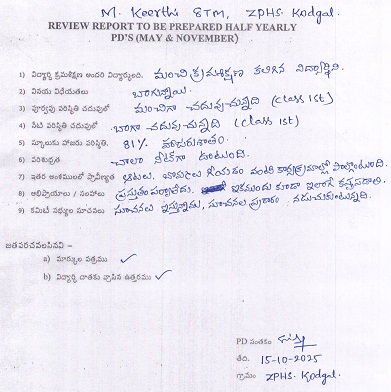 M. Keerthi 8TM, ZPHS. Kodgal.
REVIEW REPORT TO BE PREPARED HALF YEARLY
PD'S (MAY & NOVEMBER)
1) విద్యార్థి క్రమశిక్షణ అందరి విద్యార్థులంది. మంచి క్రమశిక్షణ కలిగిన విద్యార్థిని.
2) వినయ విధేయతలు బాగున్నాయి.
3) పూర్వపు పరిస్థితి చదువులో మంచిగా చదువుచున్నది (Class 1st)
4) నేటి పరిస్థితి చదువులో బాగా చదువుచున్నది (Class 1st)
5) స్కూలుకు హాజరు పరిస్థితి. 81% హాజరుశాతం.
6) పరిశుభ్రత చాలా నీట్‌గా ఉంటుంది.
7) ఇతర అంశములలో ప్రావీణ్యత ఆటలు, పాటలు గీయడం వంటి కార్యక్రమాల్లో పాల్గొంటుంది.
8) అభిప్రాయాలు / సలహాలు ప్రస్తుతం ఇకముందు కూడా ఇలాగే కష్టపడాలి.
9) కమిటీ సభ్యుల సూచనలు సూచనలు ఇస్తున్నాము, సూచనల ప్రకారం నడుచుకుంటున్నది.
జతపరచవలసినవి -
a) మార్కుల పత్రము ✓
b) విద్యార్థి దాతకు వ్రాసిన ఉత్తరము ✓
PD సంతకం
తేది. 15-10-2025
గ్రామం ZPHS. Kodgal.